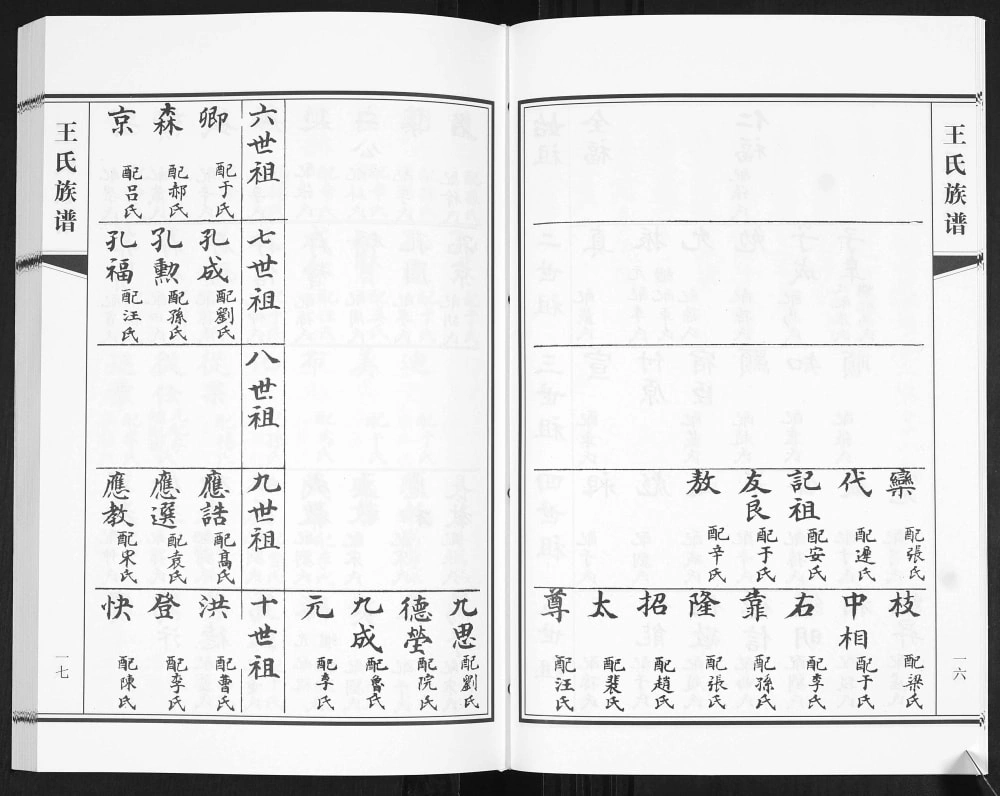 王氏族谱
一六
欒 配張氏
代 配遲氏
記祖 配安氏
友良 配于氏
敖 配辛氏
枝 配梁氏
中相 配于氏
右 配李氏
靠 配孫氏
隆 配張氏
招 配趙氏
太 配裴氏
尊 配汪氏
九思 配劉氏
德瑩 配院氏
九成 配魯氏
元 配李氏
六世祖
卿 配于氏
森 配郝氏
京 配呂氏
七世祖
孔成 配劉氏
孔勲 配孫氏
孔福 配汪氏
八世祖
九世祖
應誥 配髙氏
應選 配袁氏
應教 配宋氏
十世祖
洪 配曹氏
登 配李氏
快 配陳氏
王氏族谱
一七